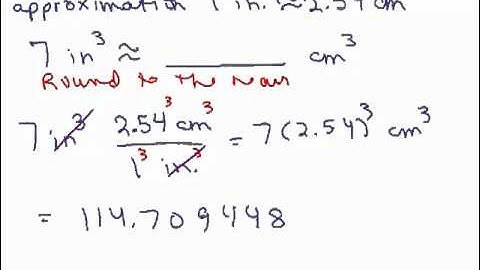 approximation 1 in. ≈ 2.54 cm
7 in³ ≈ ________ cm³
Round to the near
7 in³ 2.54³ cm³ / 1³ in.³ = 7(2.54)³ cm³
= 114.709448